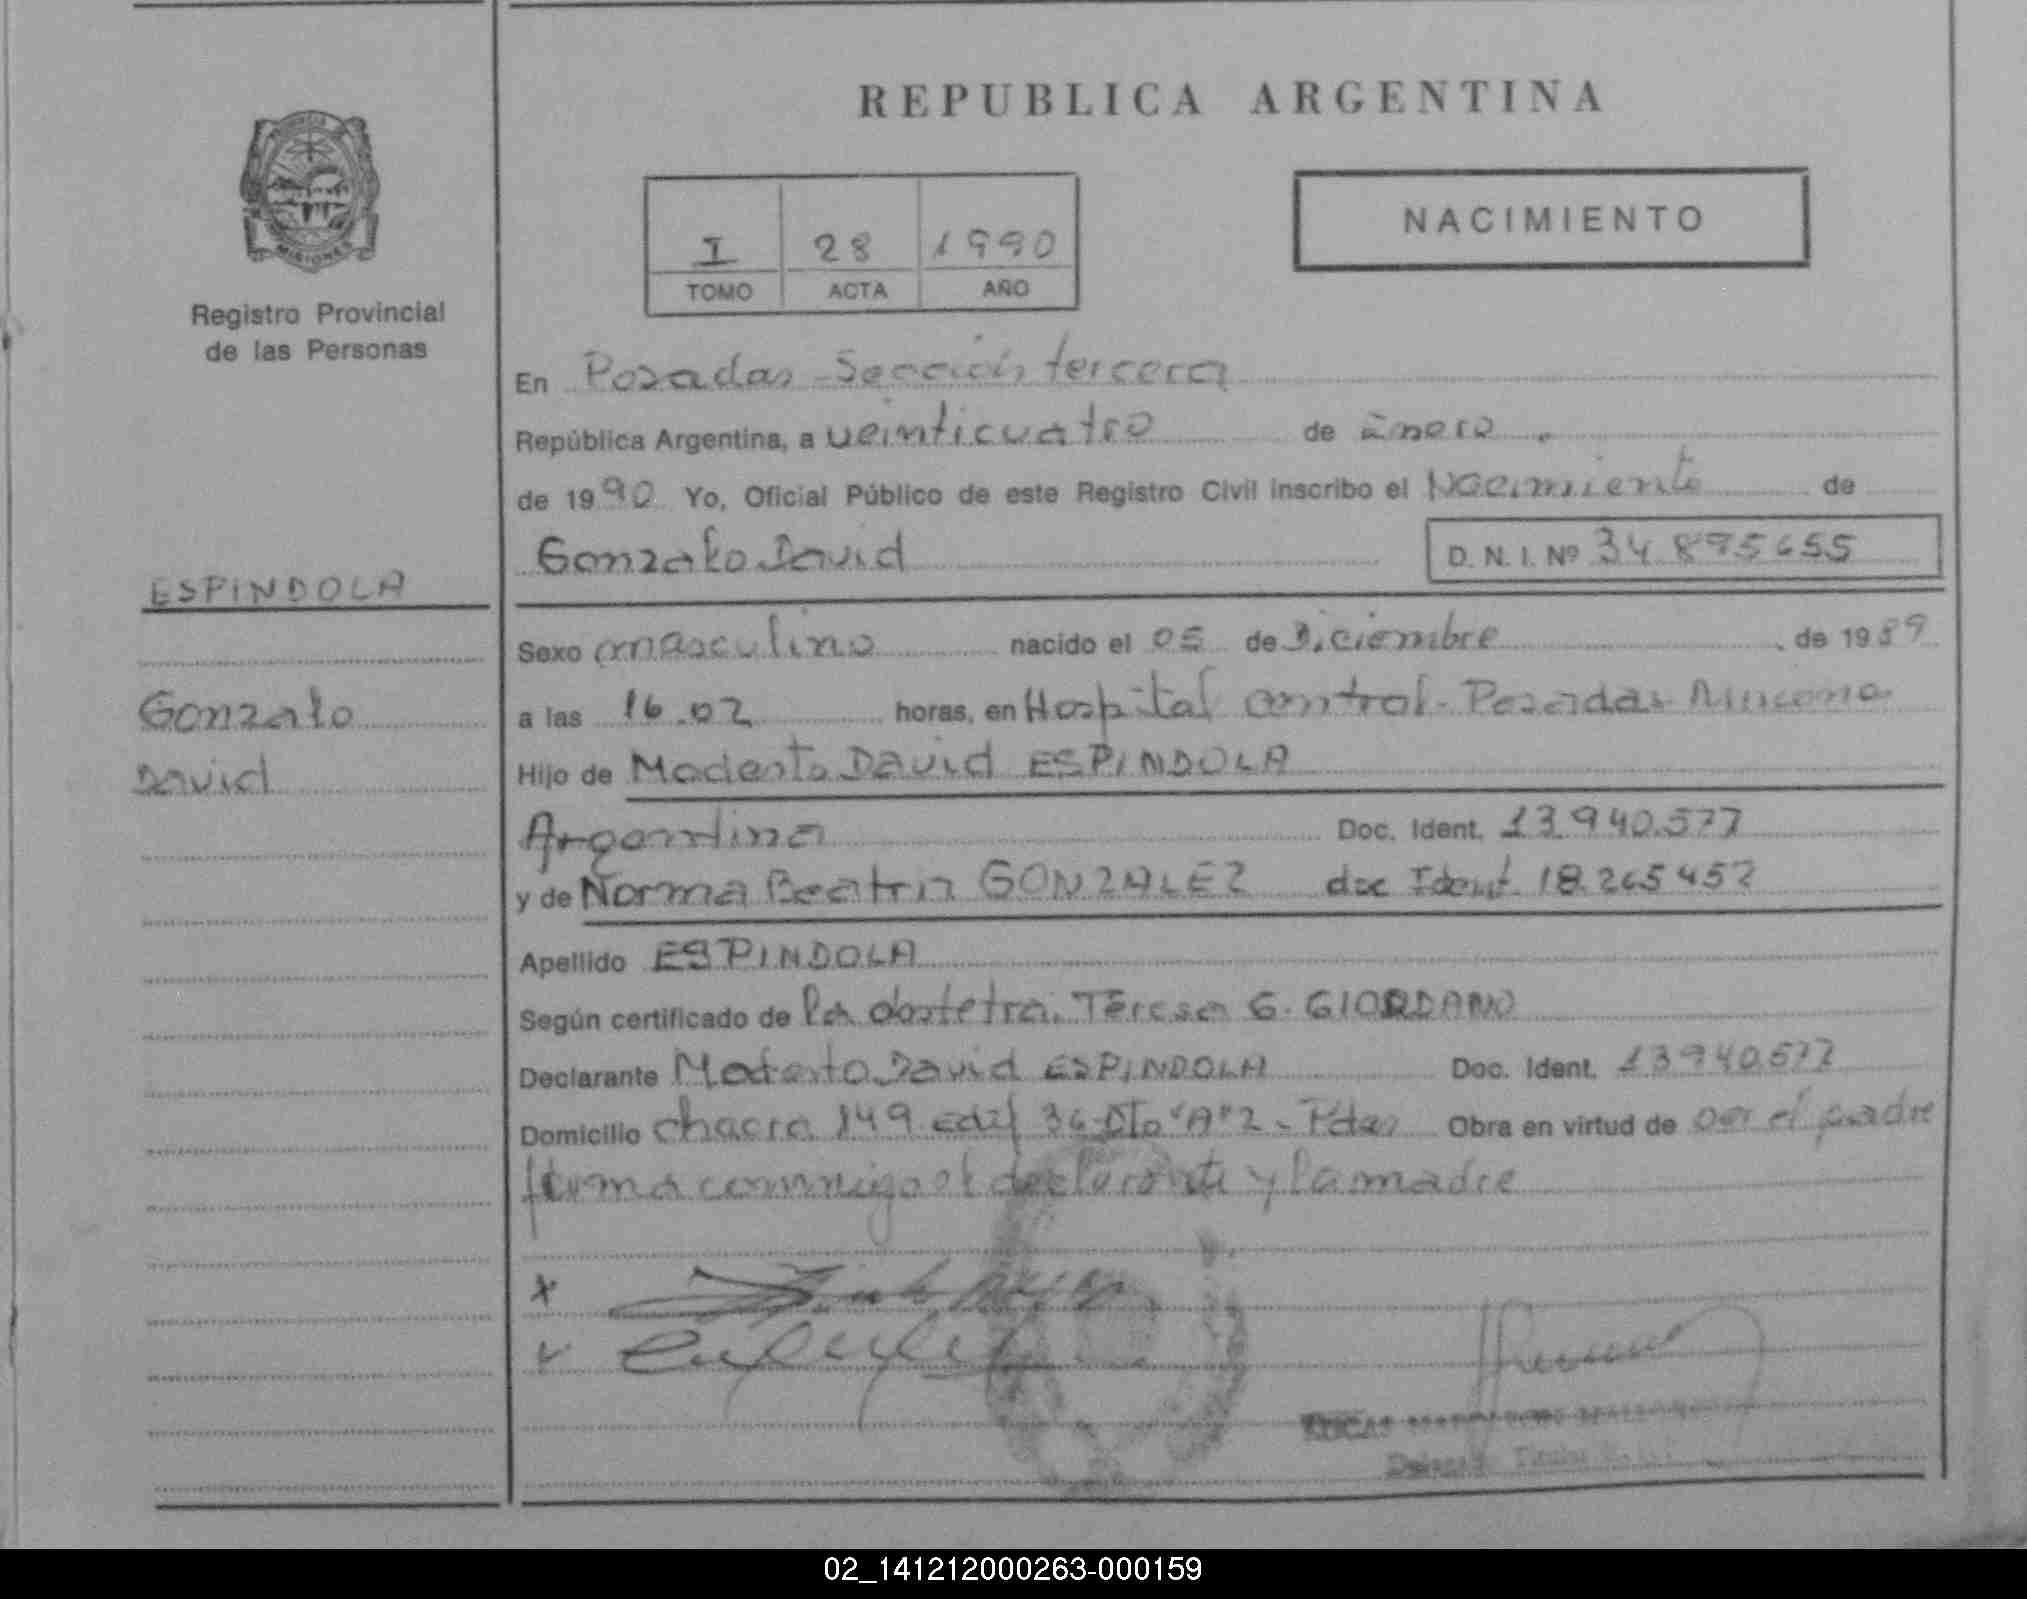 REPUBLICA ARGENTINA
I 28 1990
TOMO ACTA AÑO
NACIMIENTO
MISIONES
Registro Provincial
de las Personas
ESPINDOLA
Gonzalo
David
En Posadas - Sección tercera
República Argentina, a veinticuatro de Enero
de 1990 Yo, Oficial Público de este Registro Civil inscribo el Nacimiento de
Gonzalo David
D. N. I. Nº 34.895655
Sexo masculino nacido el 05 de Diciembre de 1989
a las 16.02 horas, en Hospital central - Posadas
Hijo de Modesto David ESPINDOLA
Argentina Doc. Ident. 13.940.577
y de Norma Beatriz GONZALEZ doc Ident. 18.265457
Apellido ESPINDOLA
Según certificado de la obstetra. Teresa G. GIORDANO
Declarante Modesto David ESPINDOLA Doc. Ident. 13940577
Domicilio chacra 149 edif 36 Dto "A" 2 - Pdas Obra en virtud de ser el padre
firma conmigo el declarante y la madre
02_141212000263-000159